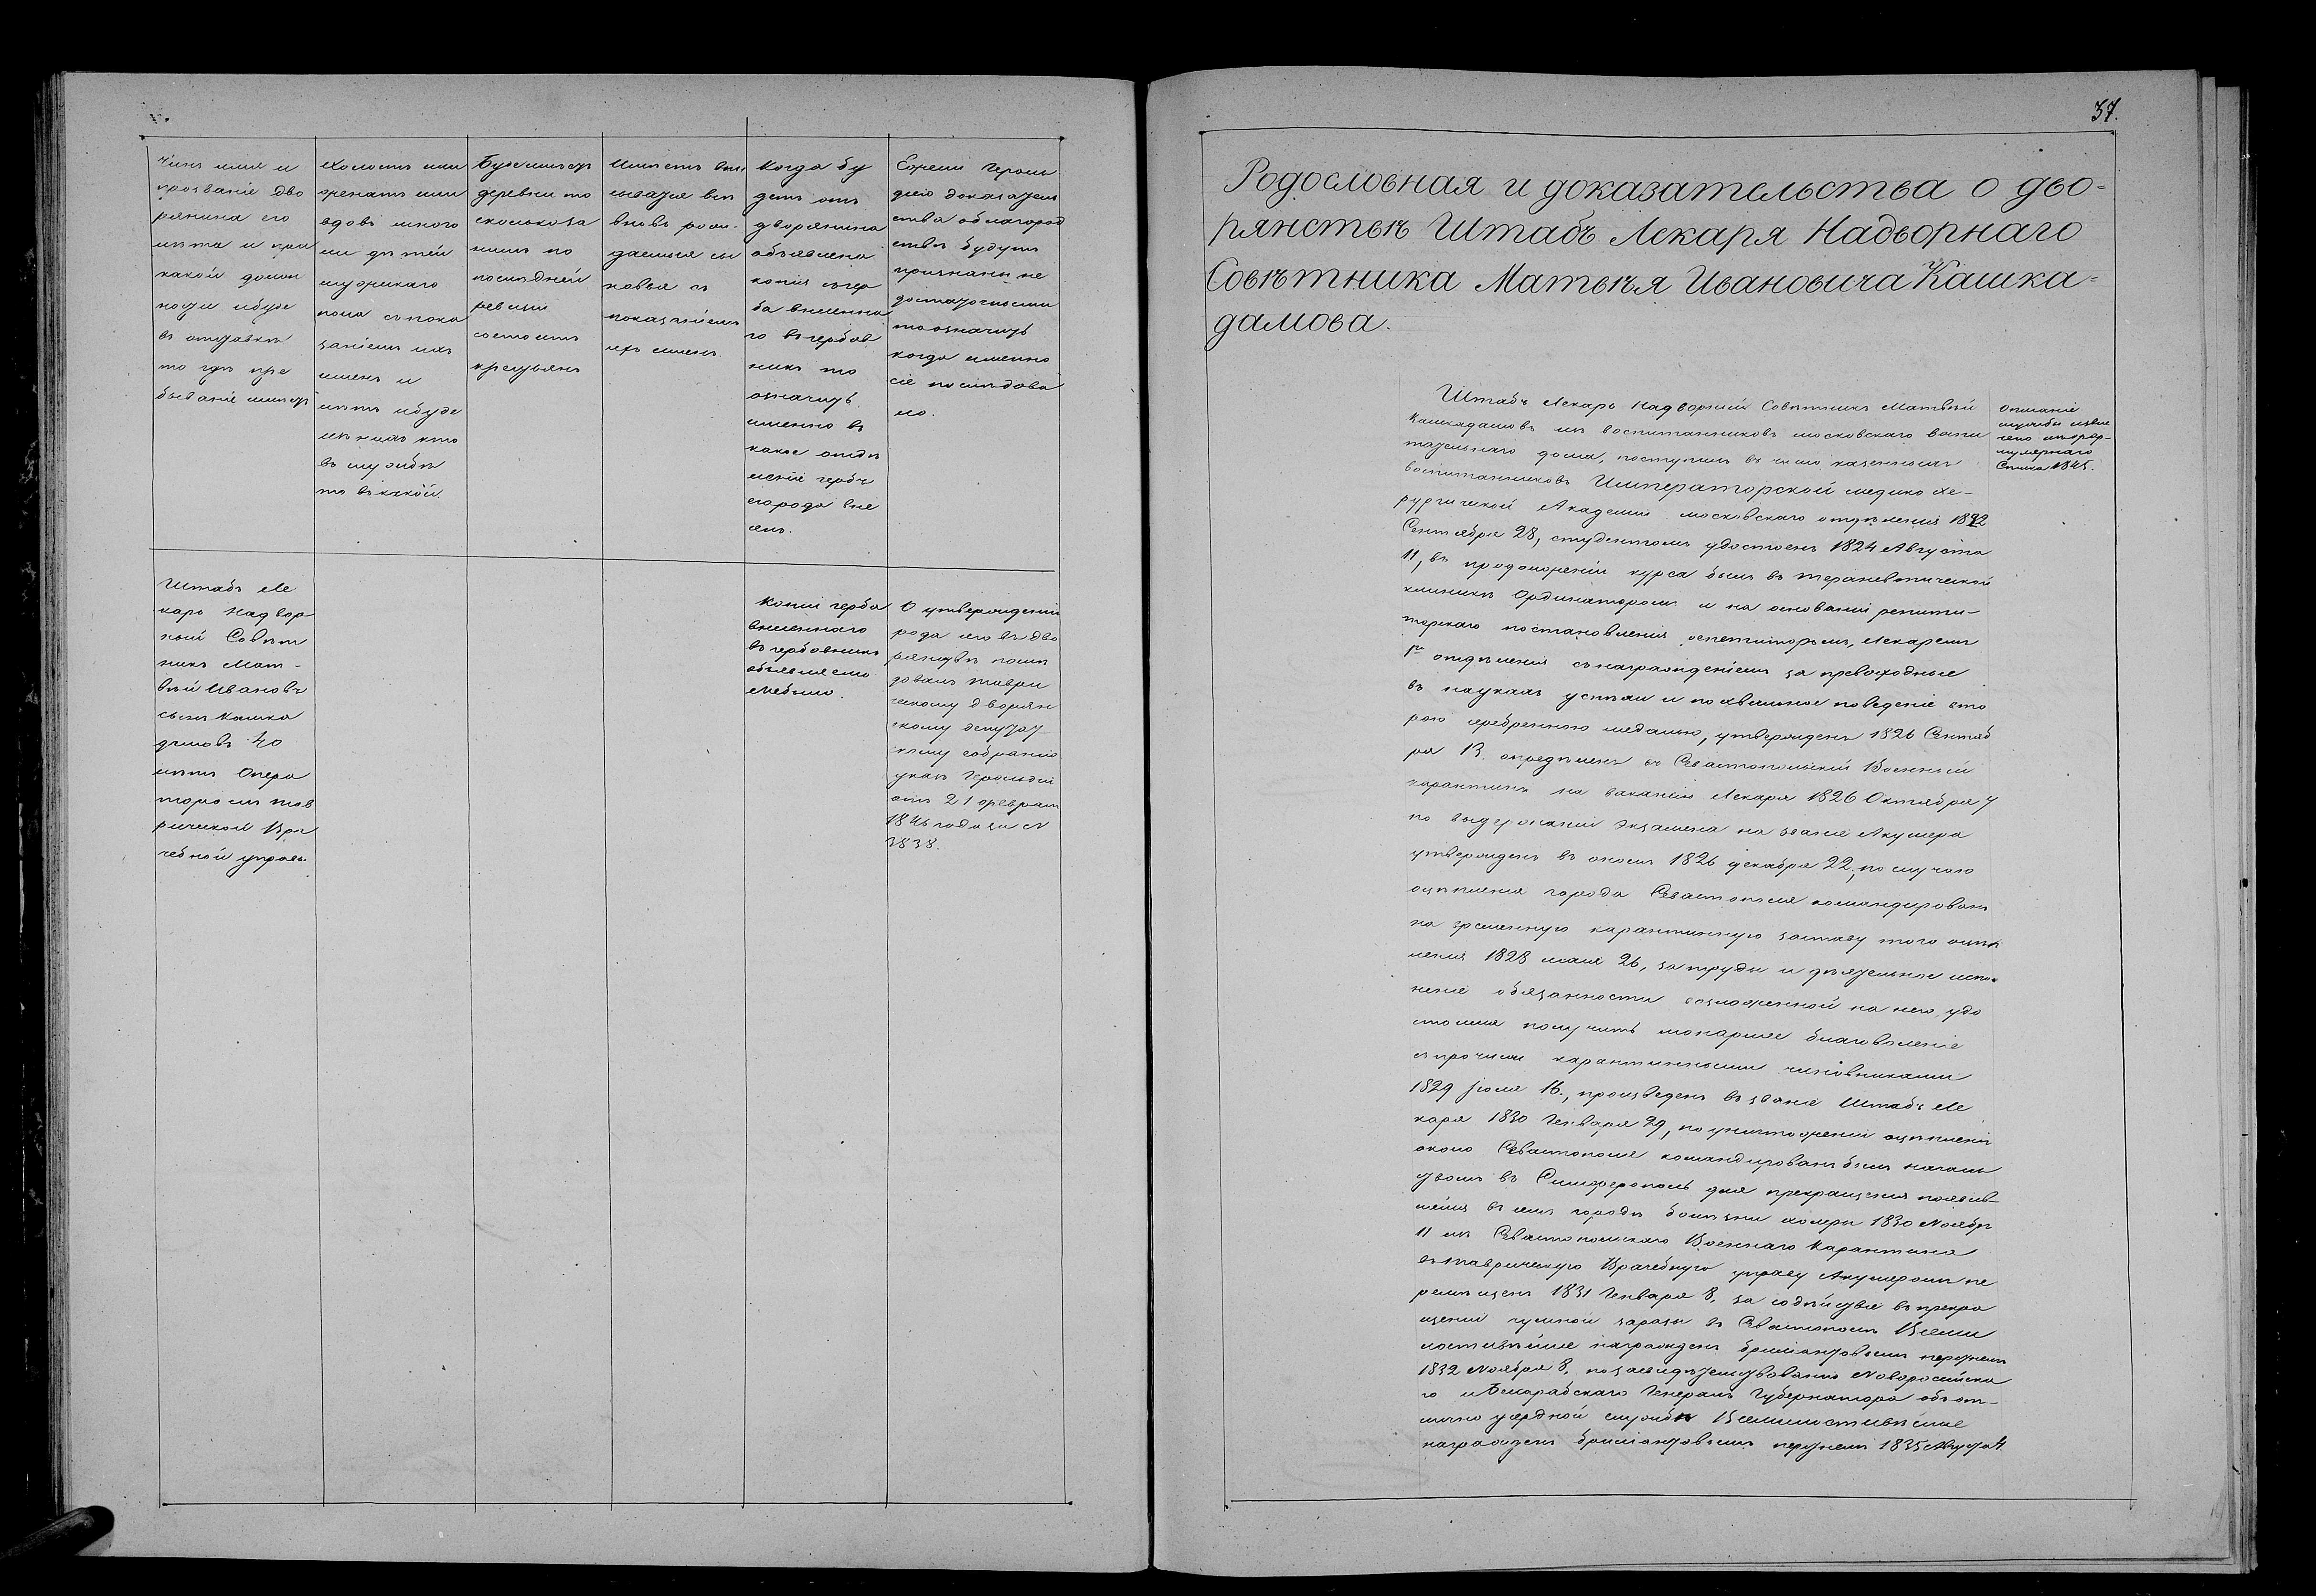 Чинъ имя и
прозваніе Дво
рянина его
лѣта и при
какой долж
ности ибуде
въ отставкѣ
то гдѣ пре
бываніе имѣетъ
Холостъ или
женатъ или
вдовъ много
ли дѣтей
мужескаго
пола съ пока
заніемъ ихъ
именъ и
лѣтъ ибуде
изъ нихъ кто
въ службѣ
то въ какой.
Буде имѣетъ
деревни то
сколько за
нимъ по
послѣдней
ревизіи
состоитъ
крестьянъ
вновь рож-
даемыя сы
новья съ
показаніемъ
ихъ именъ
Когда бу
детъ отъ
дворянина
объявлена
копія съ гер
ба внесенна
го въ гербов
никъ то
означить
именно въ
какое отдѣ
леніе гербъ
его рода вне
сенъ.
Ежели Героль
діею доказатель
ства о благород
ствѣ будутъ
признаны не
достаточными
то означить
когда именно
сіе послѣдова
ло.
Штабъ Ле
карь Надвор
ный Совѣт
никъ Мат-
вѣй Ивановъ
сынъ Кашка
дамовъ 40
лѣтъ Опера
торомъ Тав
рической Вра
чебной управы.
Копіи герба
внесеннаго
въ гербовникъ
объявляемо
не было.
О утвержденіи
рода его въ Дво
рянствѣ послѣ
довалъ Таври
ческому Дворян
скому депутат
скому собранію
указъ Герольдіи
отъ 21 февраля
года за №
3838.
37.
Родословная и доказательства о дво-
рянствѣ Штабъ Лекаря Надворнаго
Совѣтника Матвѣя Ивановича Кашка-
дамова.
Описаніе
службы извле
чено изъ фор-
мулярнаго
Списка 1845.
Штабъ Лекарь Надворный Совѣтникъ Матвѣй
Кашкадамовъ изъ воспитанниковъ московскаго воспи
тательнаго дома, поступилъ въ число казенныхъ
воспитанниковъ Императорской медико Хи-
рургической Академіи московскаго отдѣленія 1822
Сентября 28, студентомъ удостоенъ 1824 Августа
11, въ продолженіи курса былъ въ терапевтической
клиникѣ Ординаторомъ и на основаніи репети-
торскаго постановленія репетиторомъ, Лекаремъ
1го отдѣленія съ награжденіемъ за превосходные
въ наукахъ успѣхи и похвальное поведеніе вто
рою серебренною медалью, утвержденъ 1826 Сентяб
ря 13. опредѣленъ въ Севастопольскій Военный
карантинъ на ваканцію Лекаря 1826 Октября 7
по выдержаніи экзамена на званіе Акушера
утвержденъ въ ономъ 1826 декабря 22, по случаю
оцѣпленія города Севастополя командированъ
на временную карантинную заставу того оцѣп
ленія 1828 маія 26, за труды и дѣятельное испол
неніе обязанности возложенной на него, удо
стоился получить монаршее благоволеніе
съ прочими карантинными чиновниками
1829 Іюля 16., произведенъ въ званіе Штабъ Ле
каря 1830 Генваря 29, по уничтоженіи оцѣпленія
около Севастополя командированъ былъ началь
ствомъ въ Симферополь для прекращенія появив-
шейся въ семъ городѣ болѣзни холеры 1830 Ноября
11 изъ Севастопольскаго Военнаго Карантина
въ таврическую Врачебную управу Акушеромъ пе
ремѣщенъ 1831 Генваря 8, за содѣйствіе въ прекра
щеніи чумной заразы въ Севастополѣ Всеми
лостивѣйше награжденъ брилліантовымъ перстнемъ
1832 Ноября 8, по засвидѣтельствованію Новоросійска
го и Бесарабскаго Генералъ Губернатора объ от-
лично усердной службѣ Всемилостивѣйше
награжденъ брилліантовымъ перстнемъ 1835 Августа 4.